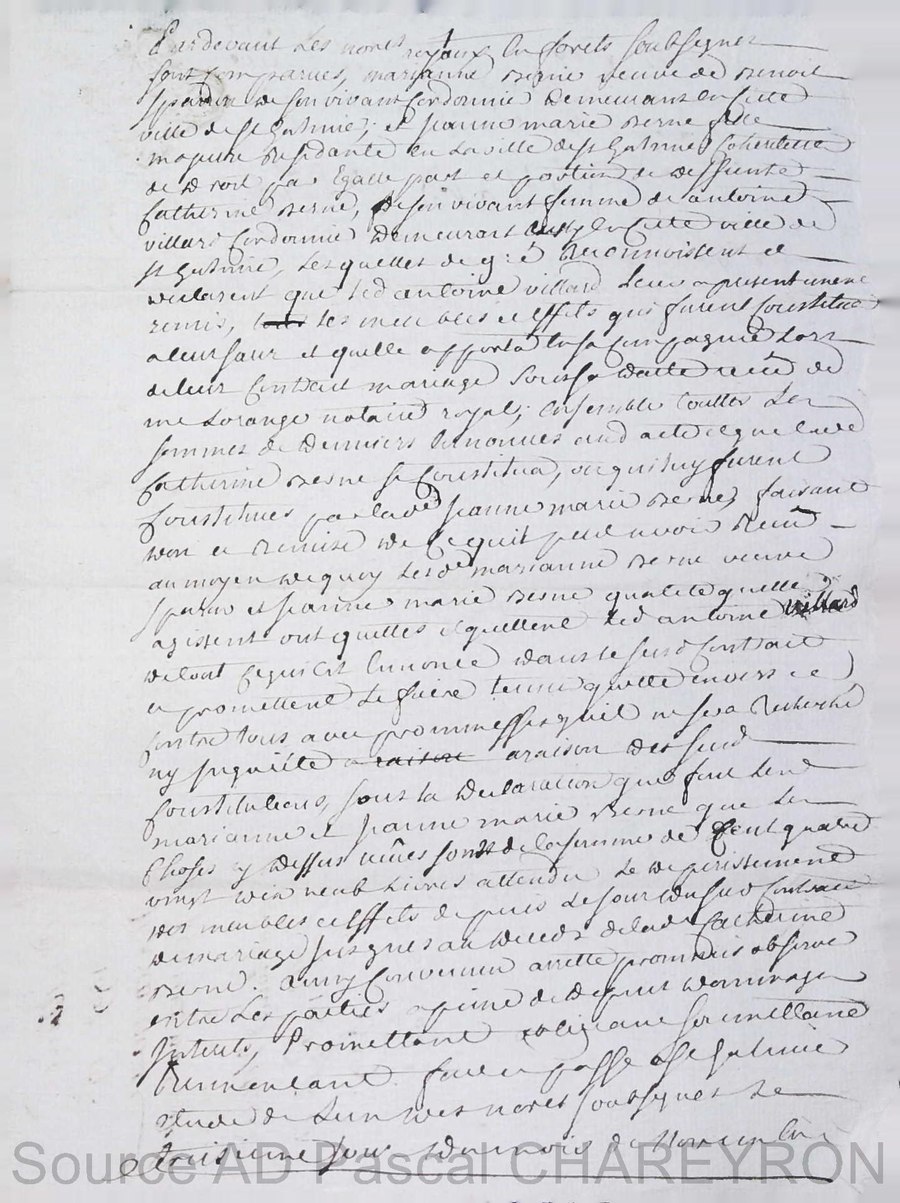 Pardevant Les nores royaux En forets soubsignes
sont comparues, marianne Berne veuve de Benoit
sparon de son vivant Cordonnie demeurant En Cette
ville de St Galmie; et jeanne marie Berne fille
majeure Residante En La ville de St Galmie Coheritiere
de droit par Egalle part et portion de deffunte
Catherine Berne, de son vivant femme de antoine
villard Cordonnie demeurant En Cette ville de
St Galmie, Lesquelles de gré Reconnoissent et
declarent que led antoine villard Leur a presentement
remis, Les meubles et Effets qui furent Constitué
a leur sœur et quelle apporta En sa Compagnie Lors
de leur Contrait mariage sous sa datte receu de
me Lorange notaire royal; Ensemble touttes Les
sommes de deniers Enoncees aud acte et que lade
Catherine Berne se Constitua, ou qui luy furent
Constitués par lade jeanne marie Berne, faisant
don et Remise de Ce quil peut avoir Receu
au moyen de quoy Lesde marianne Berne veuve
sparon et jeanne marie Berne qualité quelle
agissent ont quittés et quittent led antoine villard
de tout Ce qui Est Enoncé dans le susd Contrait
et promettent Le faire tenir quitte envers et
Contre tous avec prommesse quil ne sera Recherché
ny jnquiété a raison a raison des susd
Constitutions, sous la declaration que font lesd
marianne et jeanne marie Berne que Les
Choses cy dessus receues sont de la somme de Cent quatre
vingt dix neuf Livres attendu Le deperissement
des meubles et Effets depuis Le jour du susd Contrait
de mariage jusques au deceds de lade Catherine
Berne. ainsy Convenu arretté promis observé
entre Les parties a peine de depens dommages
jnterets, Promettant obligeant soumettant
Renoncant. fait et passé a St Galmie
etude de Lun des nores soubsignes Le
troisieme jour du mois de
Source AD Pascal CHAREYRON